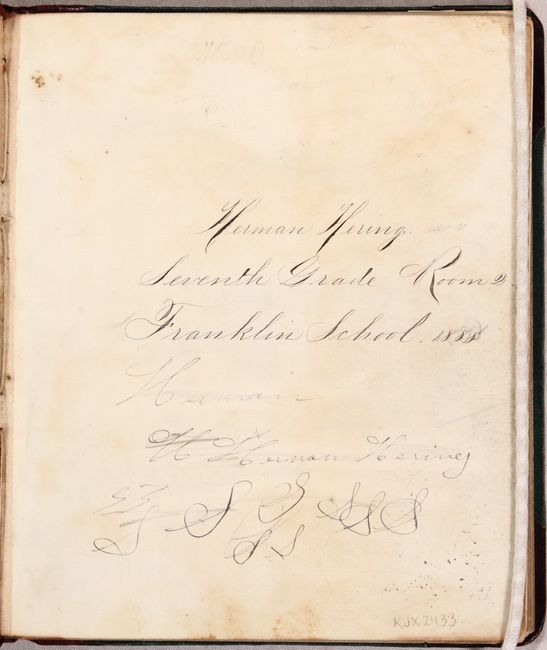 Herman Hering.
Seventh Grade Room 2.
Franklin School. 1888
Herman
H Herman Hering
S S S S S
S S S
KJX2433